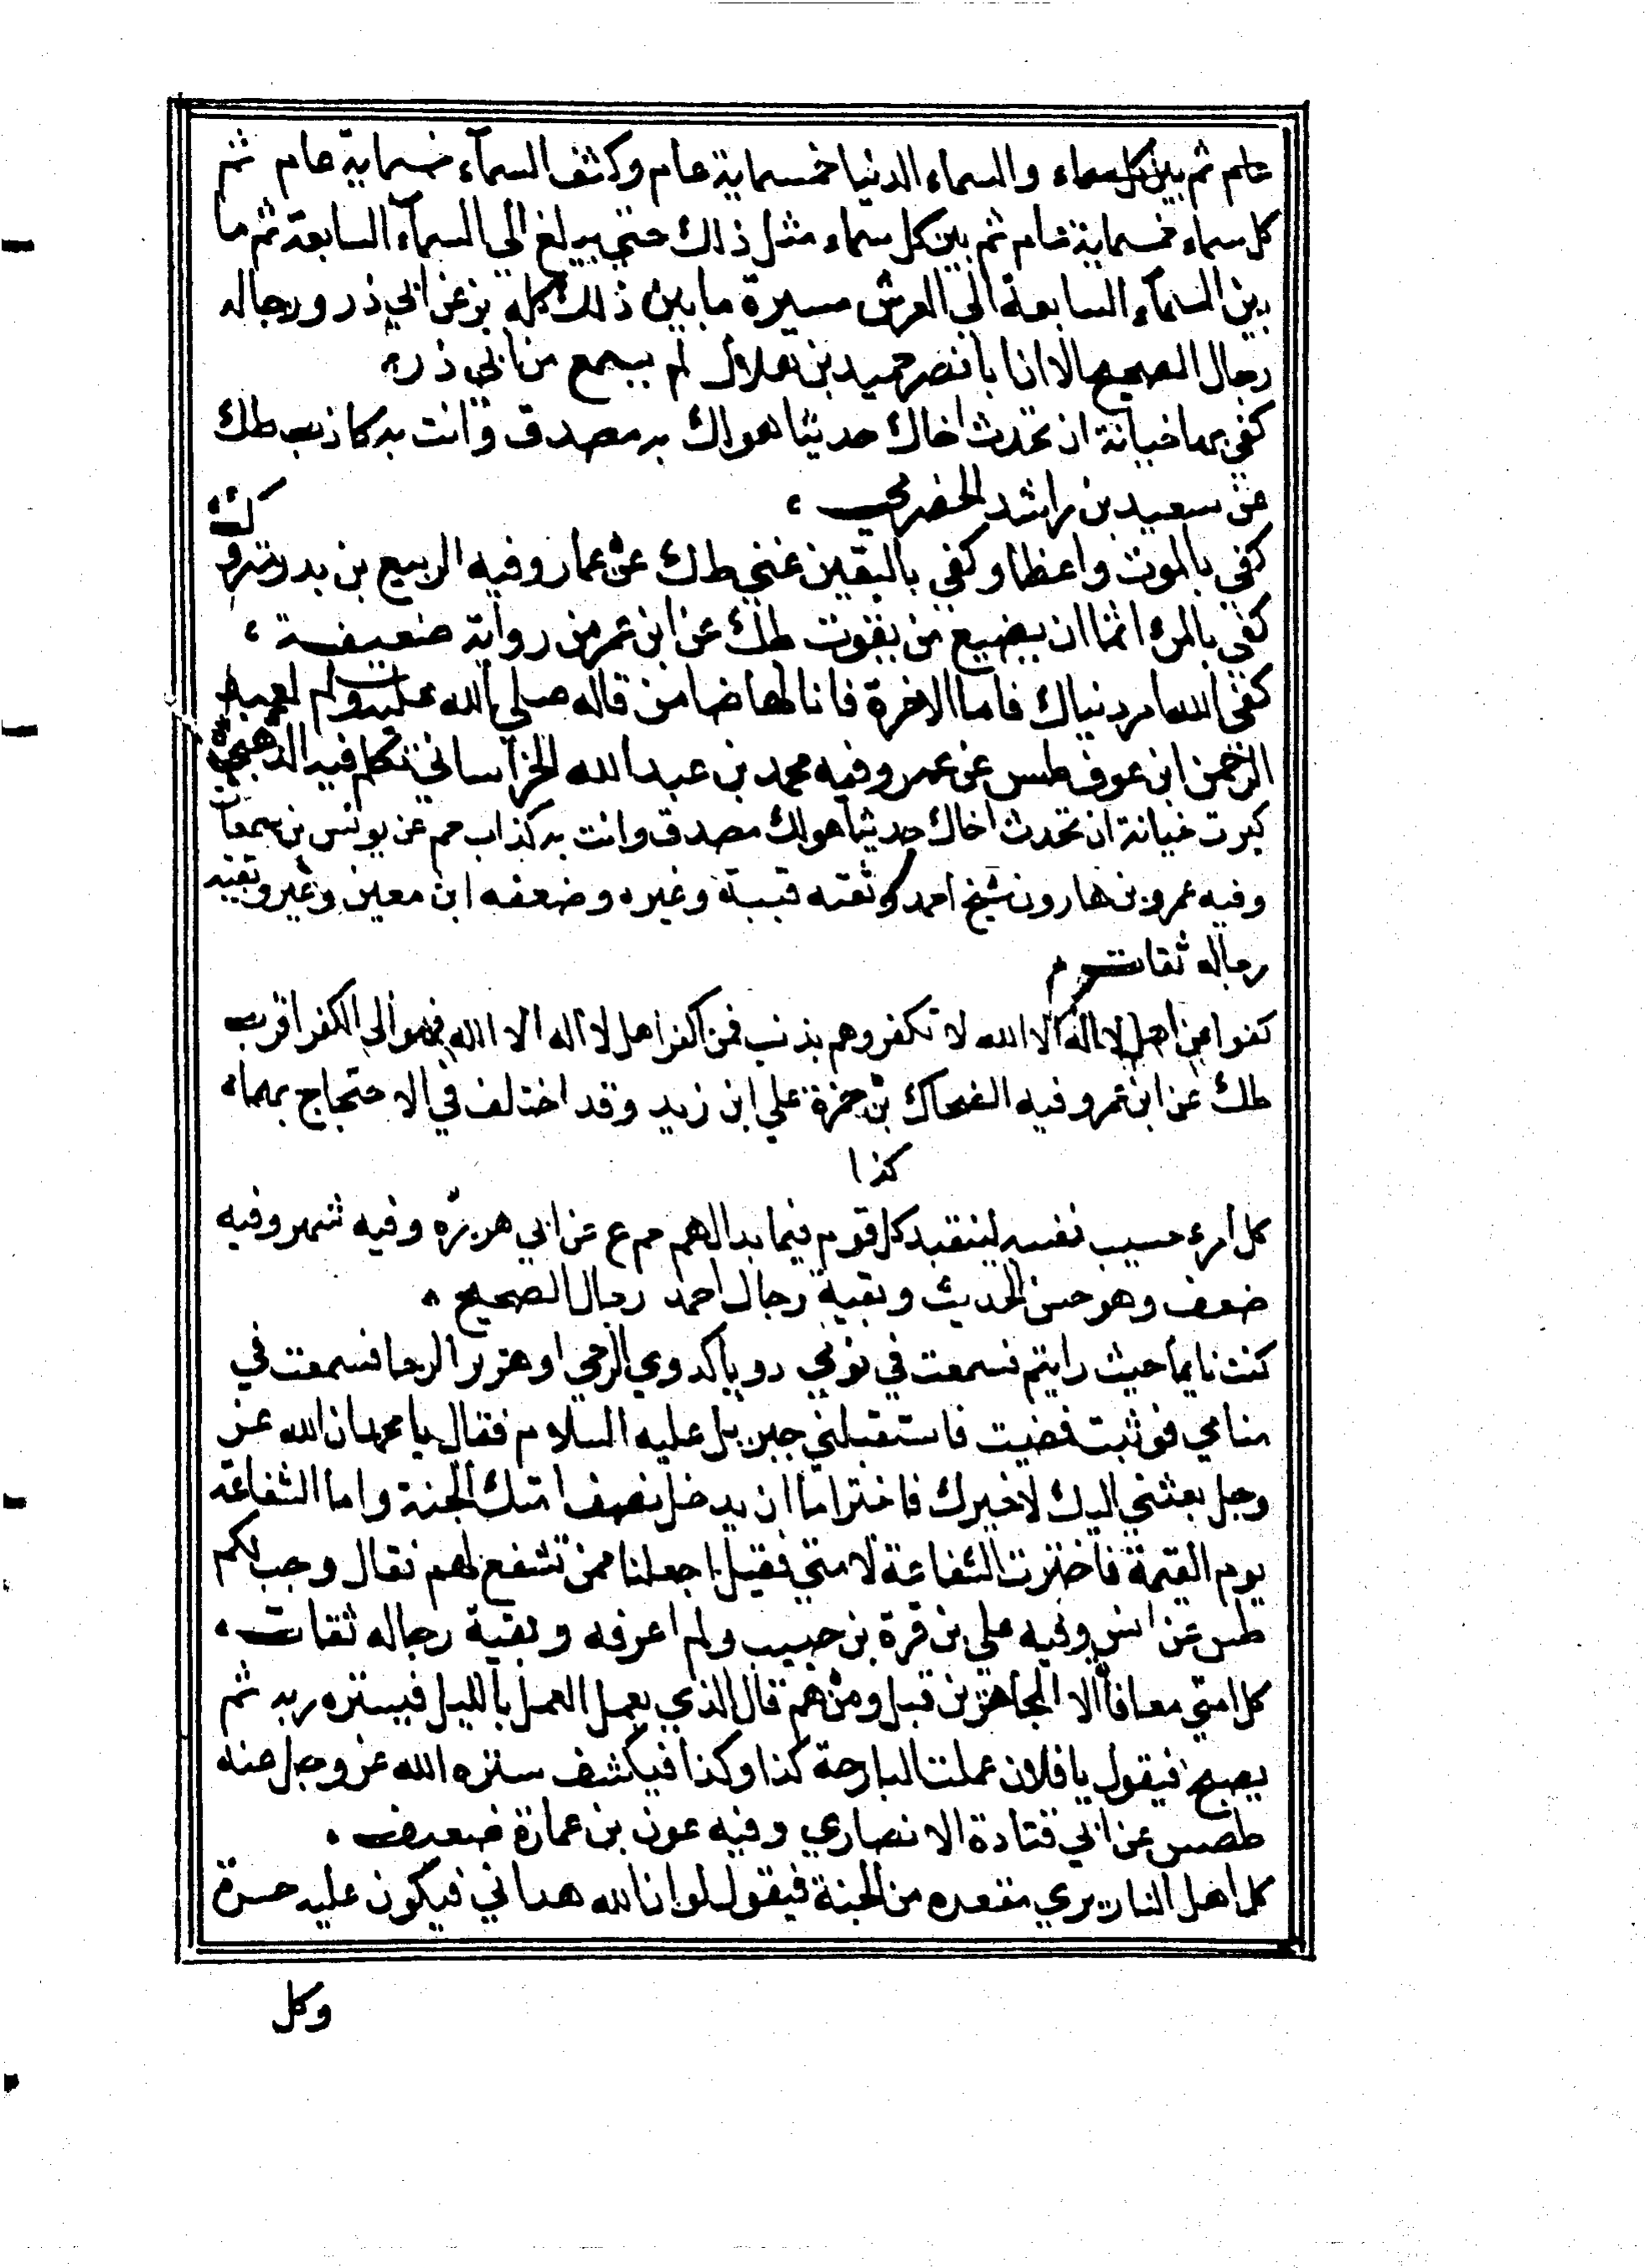 عام ثم بين كل سماء والسماء الدنيا خمسماية عام وكثف السمآء خمسماية عام ثم
كل سماء خمسماية عام ثم بين كل سماء مثل ذلك حتي يبلغ الي السمآء السابعة ثم ما
بين السمآء السابعة الي العرش مسيرة ما بين ذلك كله بز عن ابي ذر ورجاله
رجال الصحيح الا ان ابا نصر حميد بن هلال لم يسمع من ابي ذره
كفي بها خيانة ان تحدث اخاك حديثا هو لك به مصدق وانت به كاذب طك
عن سعيد بن راشد الحضرمي ،
كفي بالموت واعظا وكفي باليقين غني طك عن عمار وفيه الربيع بن بدر متروك
كفي بالمرء اثما ان يضيع من يقوت طك عن ابن عمر من رواية ضعيفة ،
كفي الله امر دنياك فاما الاخرة فانا لها ضامن قاله صلي الله عليه وسلم لعبد
الرحمن ابن عوف طس عن عمر وفيه محمد بن عبد الله الخراساني تكلم فيه الذهبي
كبرت خيانة ان تحدث اخاك حديثا هو لك مصدق وانت به كذاب حم عن يونس بن سمعان
وفيه عمرو بن هارون شيخ احمد وثقته قتيبة وغيره وضعفه ابن معين وغيره وبقية
رجاله ثقات
كفوا عن اهل لا اله الا الله لا تكفروهم بذنب فمن اكفر اهل لا اله الا الله فهو الي الكفر اقرب
طك عن ابن عمر وفيه الضحاك بن حمزة علي ابن زيد وقد اختلف في الاحتجاج بهما
كذا
كل امرء حسيب نفسه لينتبد كل قوم فيما بدا لهم حم ع عن ابي هريرة وفيه شهر وفيه
ضعف وهو حسن الحديث وبقية رجال احمد رجال الصحيح ،
كنت نايما حيث رايتم فسمعت في نومي دويا كدوي الرحي او هزيز الرحا فسمعت في
منامي فوثبت فمضيت فاستقبلني جبريل عليه السلام فقال يا محمد ان الله عز
وجل بعثني اليك لاخيرك فاختر اما ان يدخل نصف امتك الجنة واما الشفاعة
يوم القيمة فاخترت الشفاعة لامتي فقيل اجعلنا ممن تشفع لهم فقال وجب لكم
طس عن انس وفيه علي بن قرة بن حبيب ولم اعرفه وبقية رجاله ثقات ،
كل امتي معافا الا المجاهرين قيل ومن هم قال الذي يعمل العمل بالليل فيستره ربه ثم
يصبح فيقول يا فلان عملت البارحة كذا وكذا فيكشف ستره الله عز وجل عنه
طصس عن ابي قتادة الانصاري وفيه عون بن عمارة ضعيف ،
كل اهل النار يري مقعده من الجنة فيقول لو ان الله هداني فيكون عليه حسرة
وكل